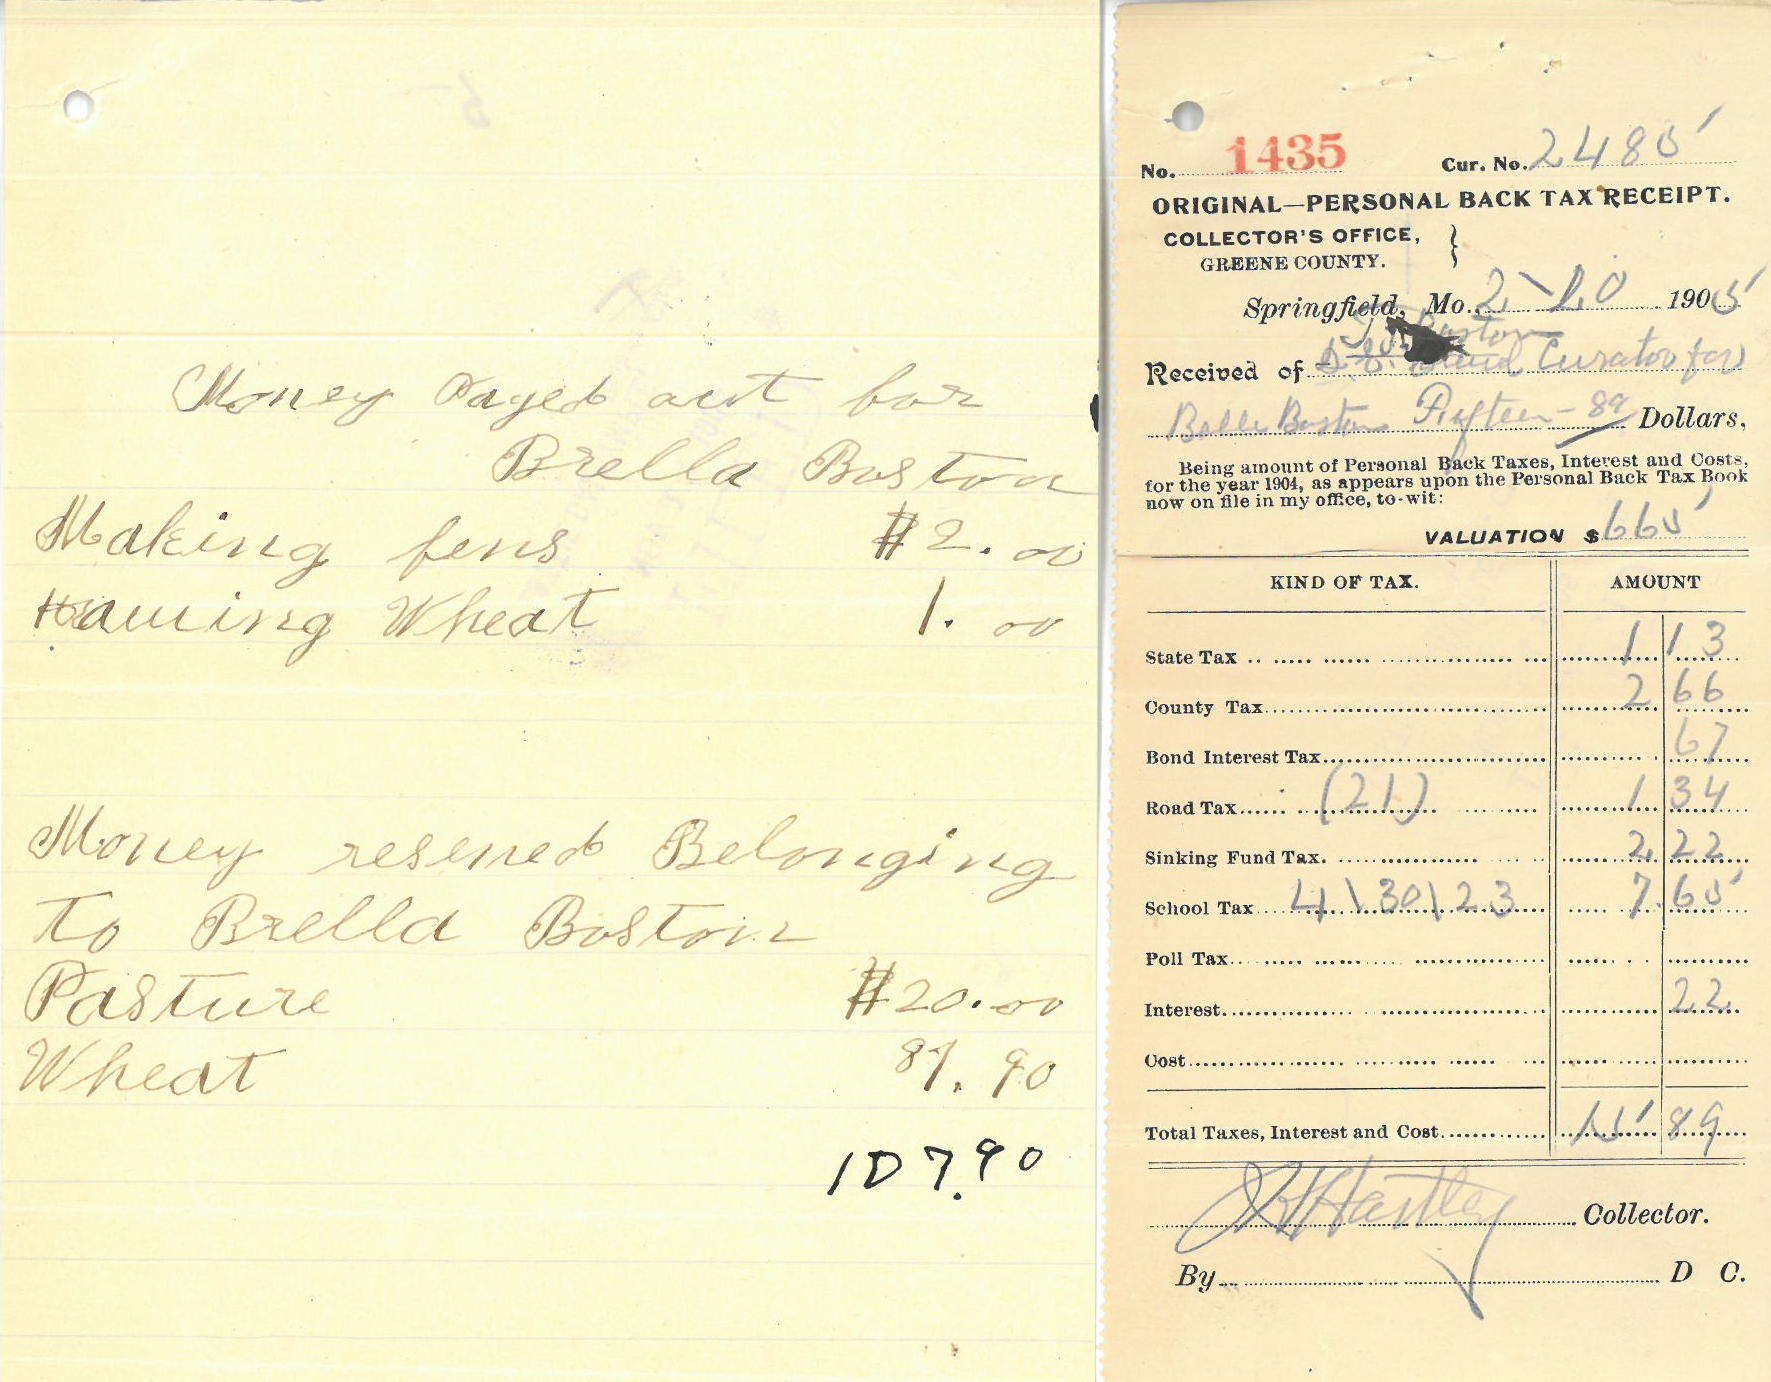 Money Payed out for
Brella Boston
Making fens $2.00
Hauling Wheat 1.00
Money reseved Belonging
To Brella Boston
Pasture $20.00
Wheat 87.90
107.90
No. 1435 Cur. No. 2485
ORIGINAL—PERSONAL BACK TAX RECEIPT.
COLLECTOR'S OFFICE,
GREENE COUNTY.
Springfield, Mo. 2-20 1905
Boston
Received of Curator for
Belle Boston Fifteen - 89 Dollars,
Being amount of Personal Back Taxes, Interest and Costs,
for the year 1904, as appears upon the Personal Back Tax Book
now on file in my office, to-wit:
VALUATION $665
KIND OF TAX. AMOUNT
State Tax 1 13
County Tax 2 66
Bond Interest Tax 67
Road Tax (21) 1 34
Sinking Fund Tax. 2 22
School Tax 4\30\23 7.65
Poll Tax
Interest 22
Cost
Total Taxes, Interest and Cost 15 89
Hartley Collector.
By D C.